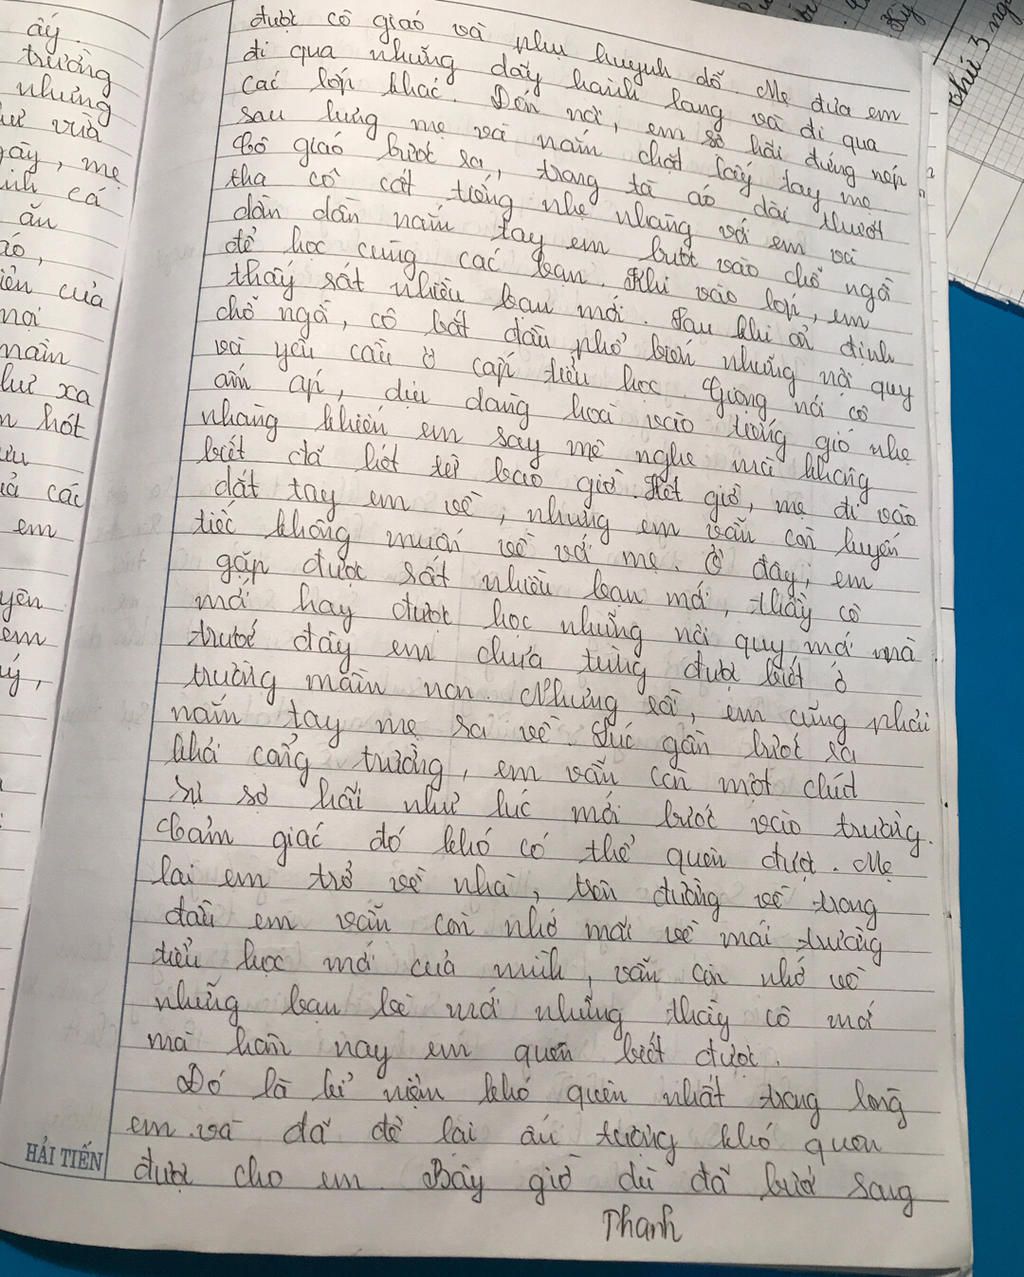 ấy.
trường
những
vừa
gầy, mẹ
cá
ăn
áo,
của
nơi
mầm
như xa
hót
các
em
yên
em
ý,
được cô giáo và phụ huynh dỗ. Mẹ đưa em
đi qua những dãy hành lang và đi qua
các lớp khác. Đến nơi, em sợ hãi đứng nép
sau lưng mẹ và nắm chặt lấy tay mẹ.
Cô giáo bước ra, trong tà áo dài thướt
tha cô cất tiếng nhẹ nhàng với em và
dần dần nắm tay em bước vào chỗ ngồi
để học cùng các bạn. Khi vào lớp, em
thấy rất nhiều bạn mới. Sau khi ổn định
chỗ ngồi, cô bắt đầu phổ biến những nội quy
và yêu cầu ở cấp tiểu học. Giọng nói cô
ấm áp, dịu dàng hoà vào tiếng gió nhẹ
nhàng khiến em say mê nghe mà không
biết đã hết tiết bao giờ. Hết giờ, mẹ đi vào
dắt tay em về, nhưng em vẫn còn luyến
tiếc không muốn về với mẹ. Ở đây, em
gặp được rất nhiều bạn mới, thầy cô
mới hay được học những nội quy mới mà
trước đây em chưa từng được biết ở
trường mầm non. Nhưng rồi, em cũng phải
nắm tay mẹ ra về. Lúc gần bước ra
khỏi cổng trường, em vẫn còn một chút
sự sợ hãi như lúc mới bước vào trường.
Cảm giác đó khó có thể quên được. Mẹ
lai em trở về nhà, trên đường về trong
đầu em vẫn còn nhớ mãi về mái trường
tiểu học mới của mình, vẫn còn nhớ về
những bạn bè mới những thầy cô mới
mà hôm nay em quen biết được.
Đó là kỉ niệm khó quên nhất trong lòng
em và đã để lại ấn tượng khó quên
được cho em. Bây giờ dù đã bước sang
HẢI TIẾN
Thanh
thứ 3